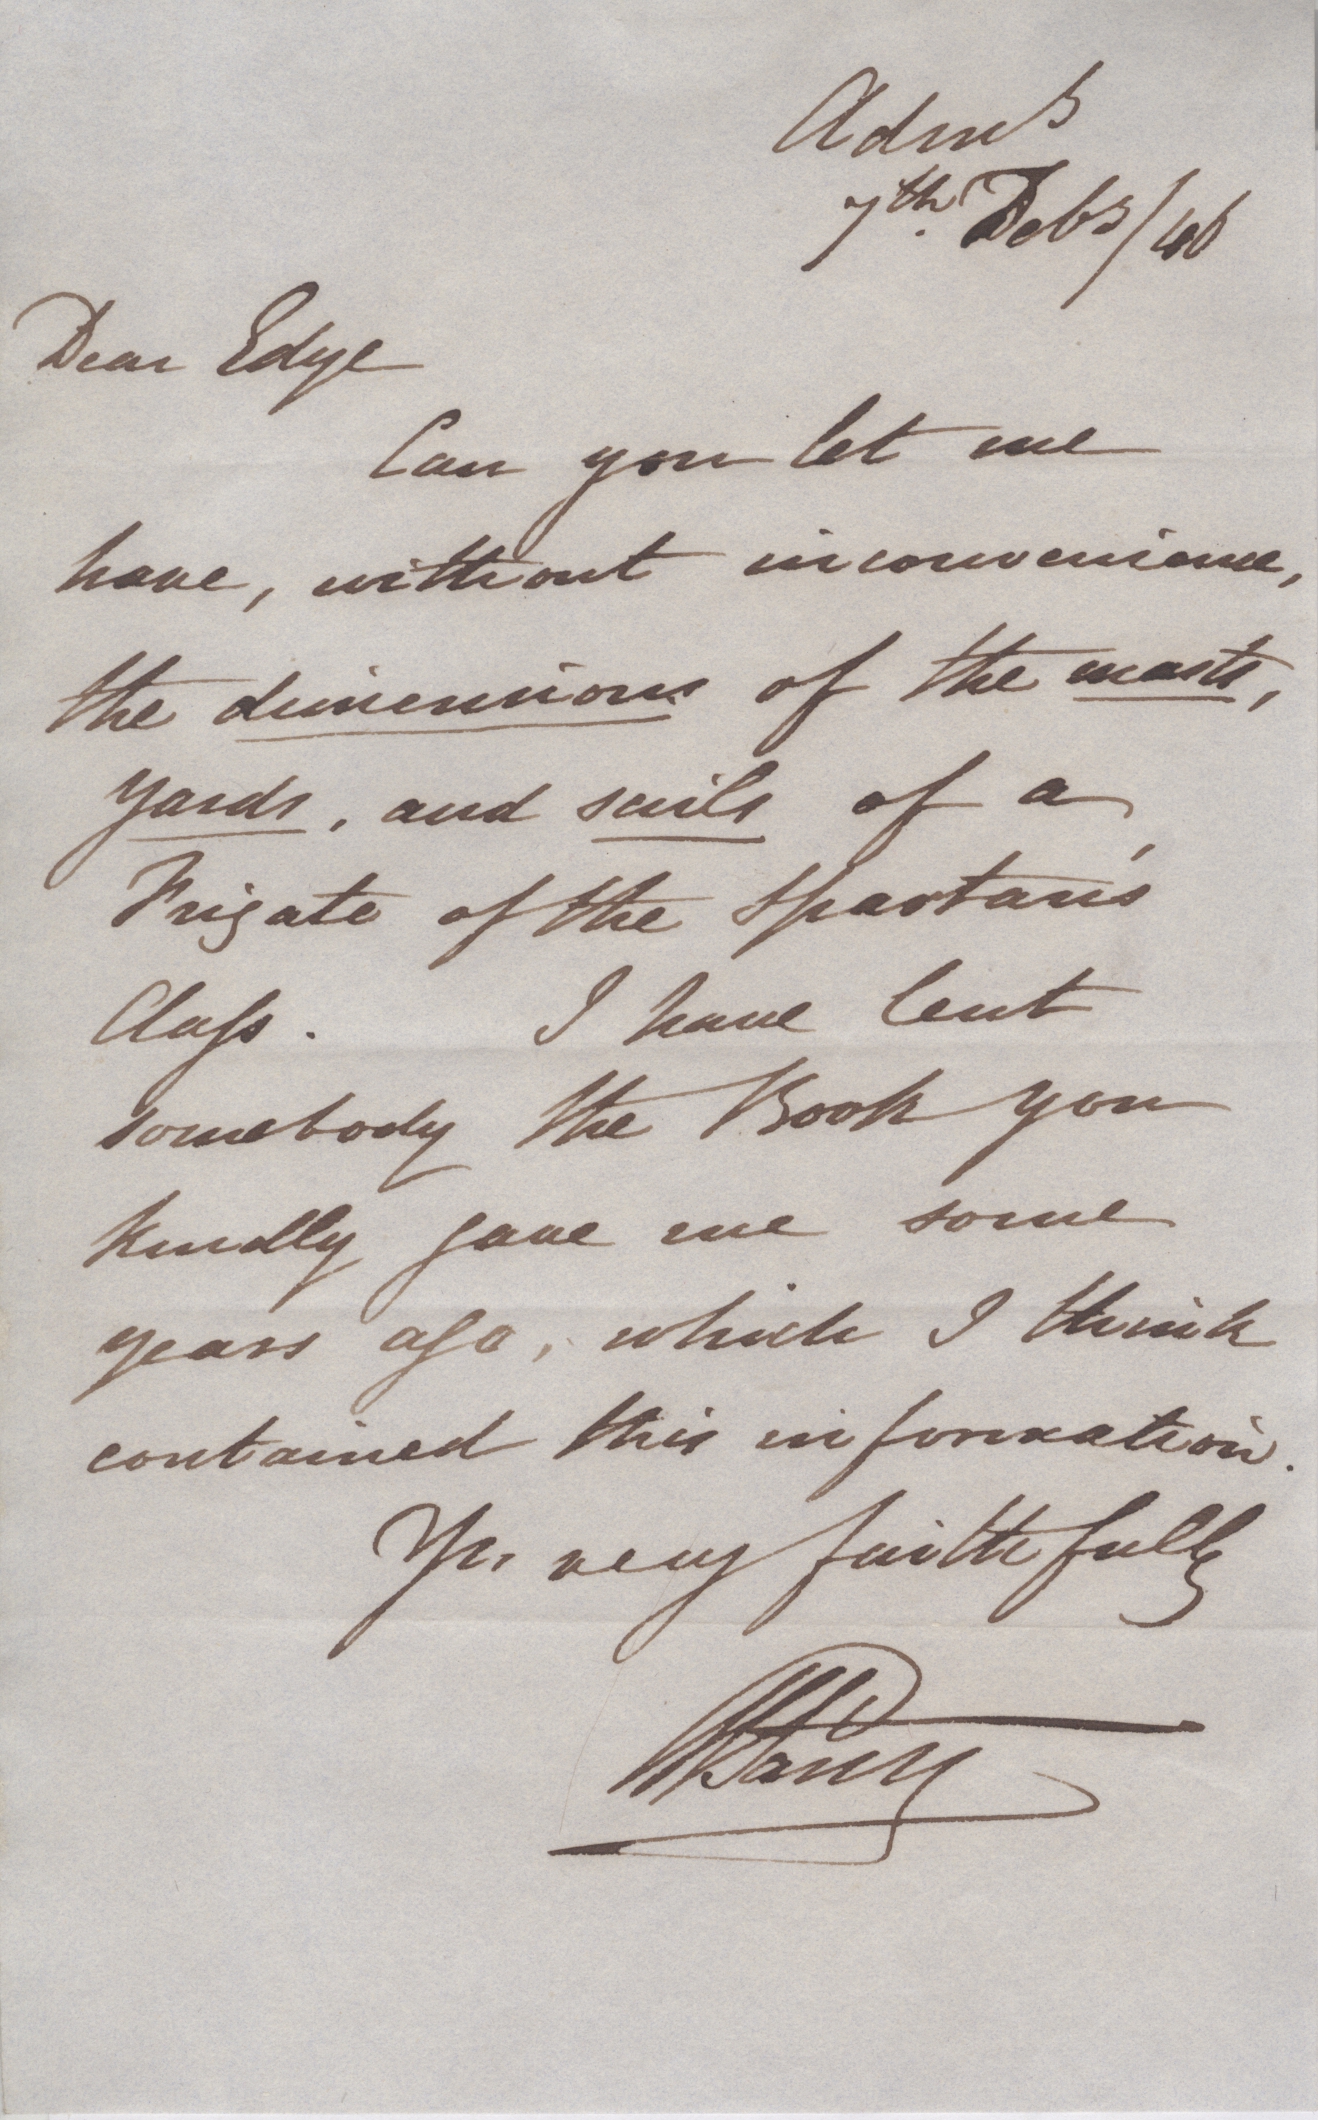 Admty
7th. Decr/46
Dear Edye
Can you let me
have, without inconvenience,
the dimensions of the masts,
yards, and sails of a
Frigate of the Spartan's
Class. I have lent
somebody the Book you
kindly gave me some
years ago, which I think
contained this information.
Yrs. very faithfully
WEParry